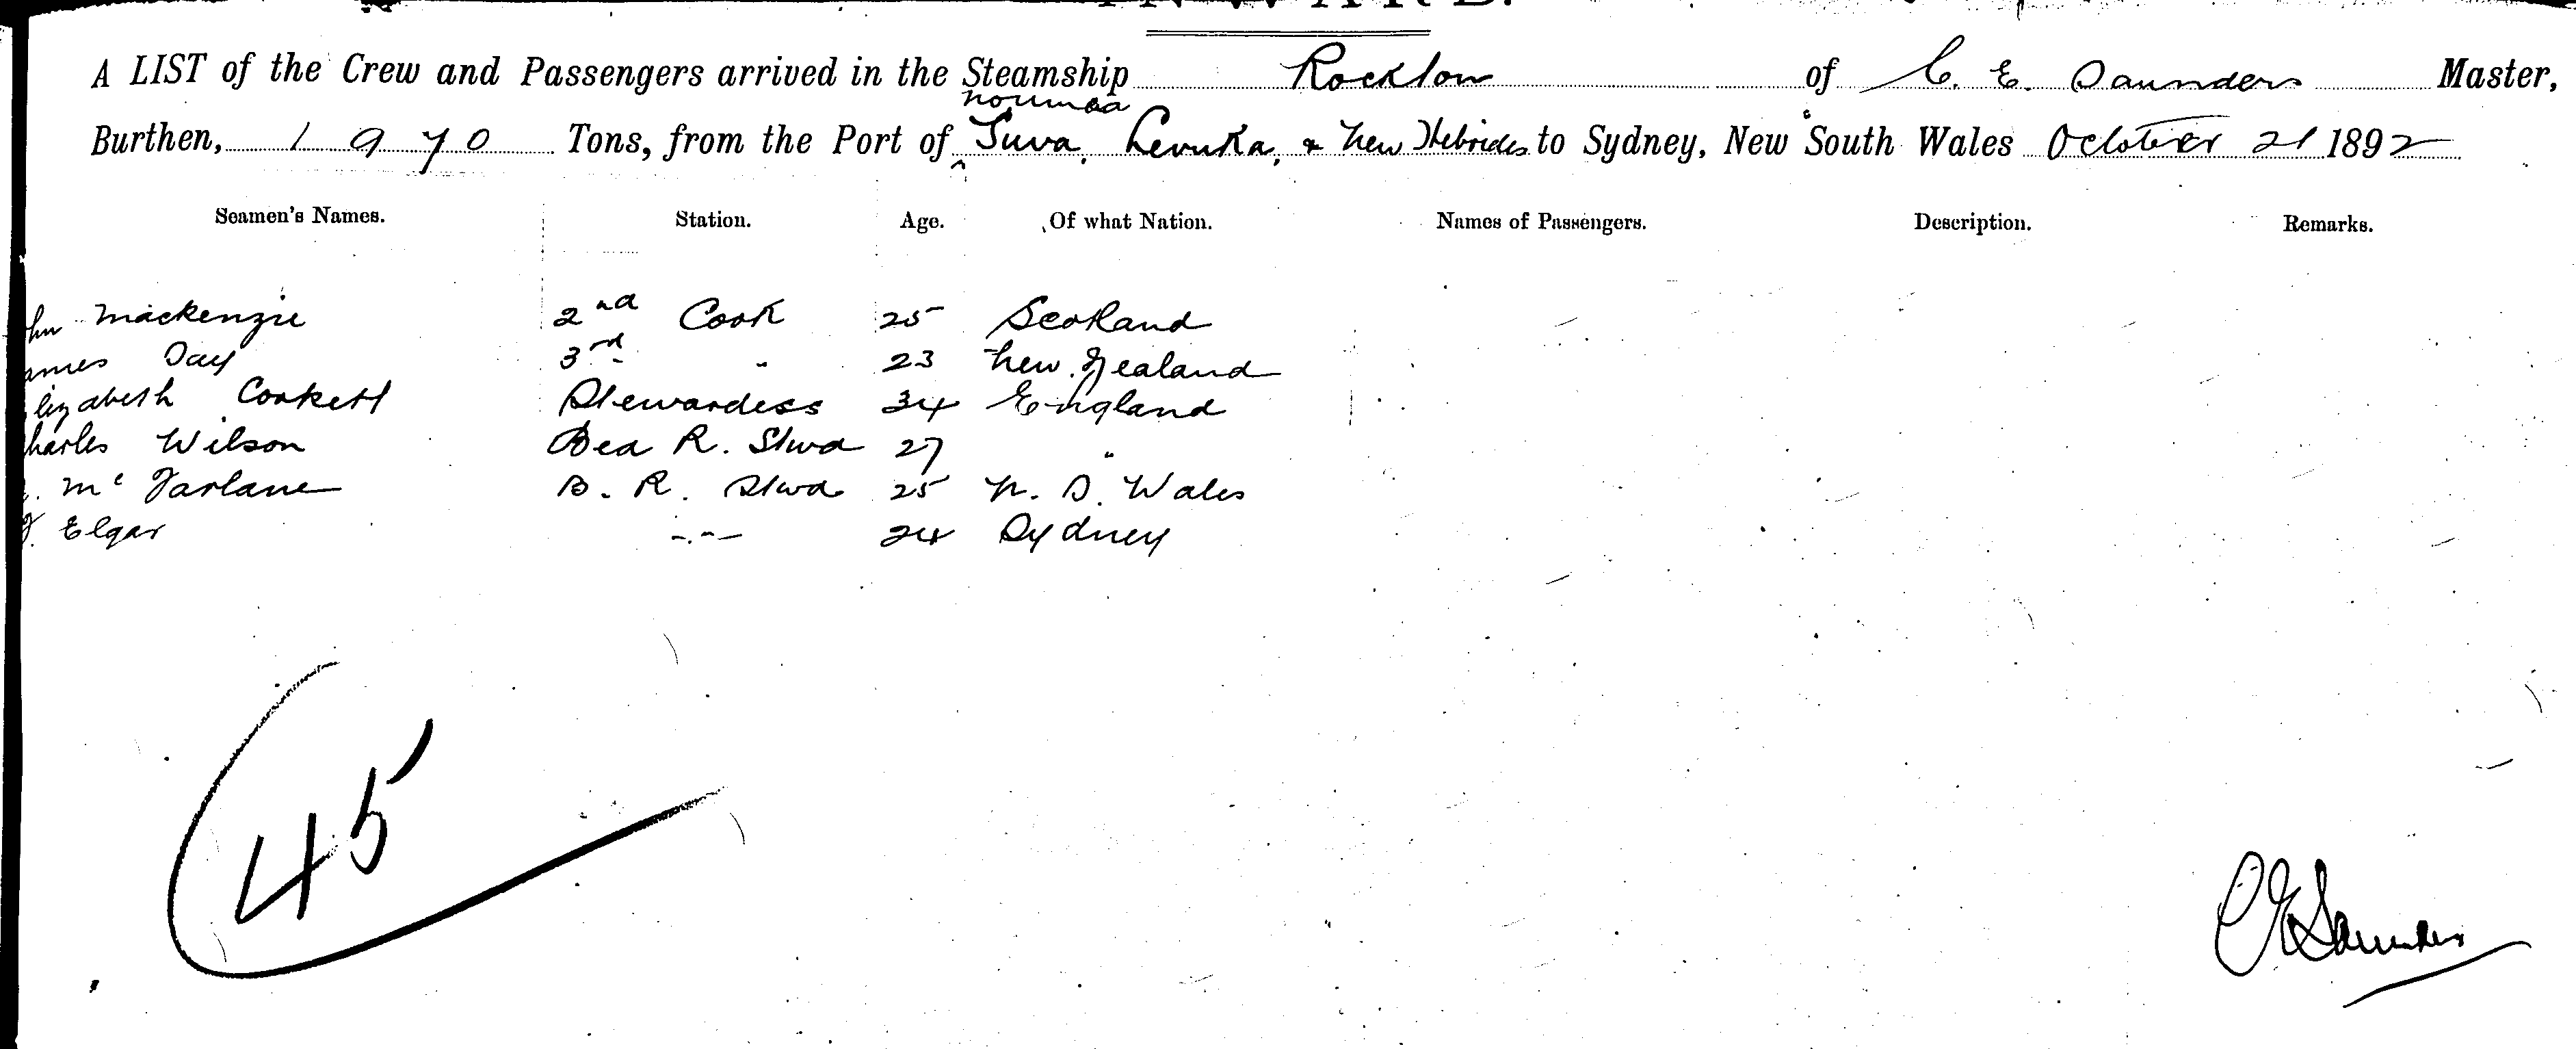 INWARD.
A LIST of the Crew and Passengers arrived in the Steamship Rockton of C. E. Saunders Master,
Noumea
Burthen, 1970 Tons, from the Port of Suva, Levuka, & New Hebrides to Sydney, New South Wales October 21 1892
Seamen's Names. Station. Age. Of what Nation. Names of Passengers. Description. Remarks.
hn Mackenzie 2nd Cook 25 Scotland
ames Day 3rd " 23 New Zealand
lizabeth Corkett Stewardess 34 England
harles Wilson Bed R. Stwd 27 "
Mc Farlane B. R. Stwd 25 N. S. Wales
Elgar -"- 24 Sydney
45
C E Saunders